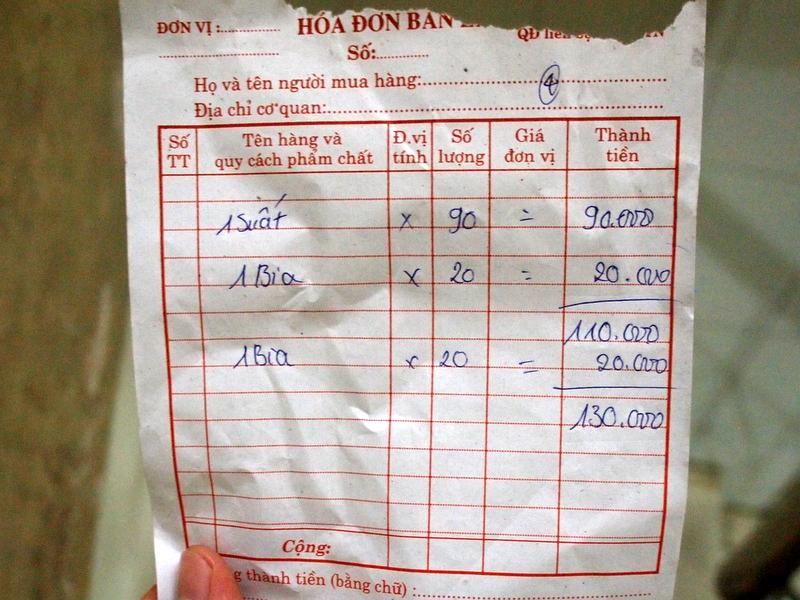 ĐƠN VỊ :............ HÓA ĐƠN BÁN
QĐ liên
Số:............
Họ và tên người mua hàng:............
4
Địa chỉ cơ quan:............
Số TT Tên hàng và quy cách phẩm chất Đ.vị tính Số lượng Giá đơn vị Thành tiền
1 Suất x 90 = 90.000
1 Bia x 20 = 20.000
110.000
1 Bia x 20 = 20.000
130.000
Cộng:
thành tiền (bằng chữ) :............